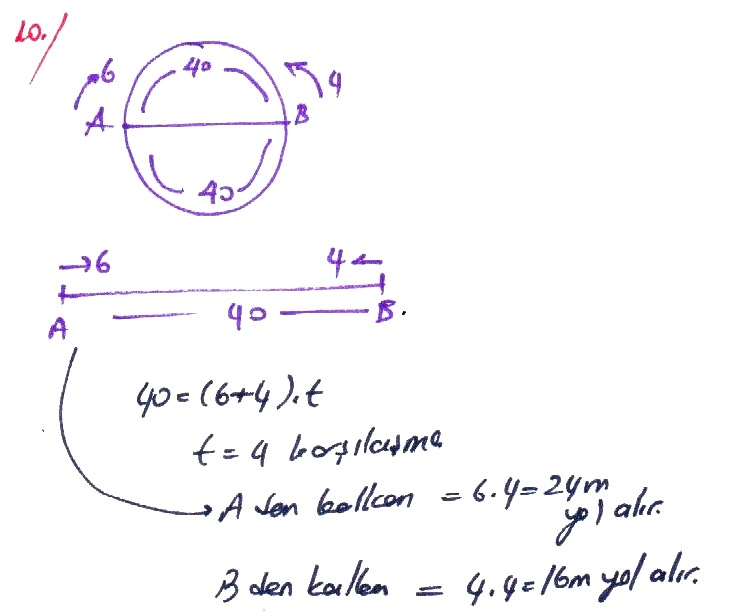 10.
6 40 4
A B
40
→6 4←
A 40 B.
40=(6+4).t
t=4 karşılaşma
A dan kalkan = 6.4=24m
yol alır.
B den kalkan = 4.4=16m yol alır.